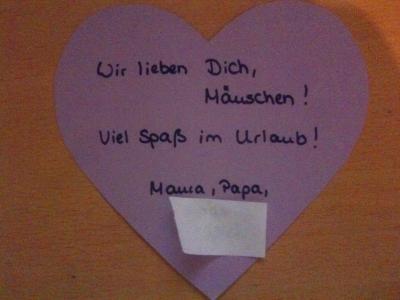 Wir lieben Dich,
Mäuschen!
Viel Spaß im Urlaub!
Mama, Papa,